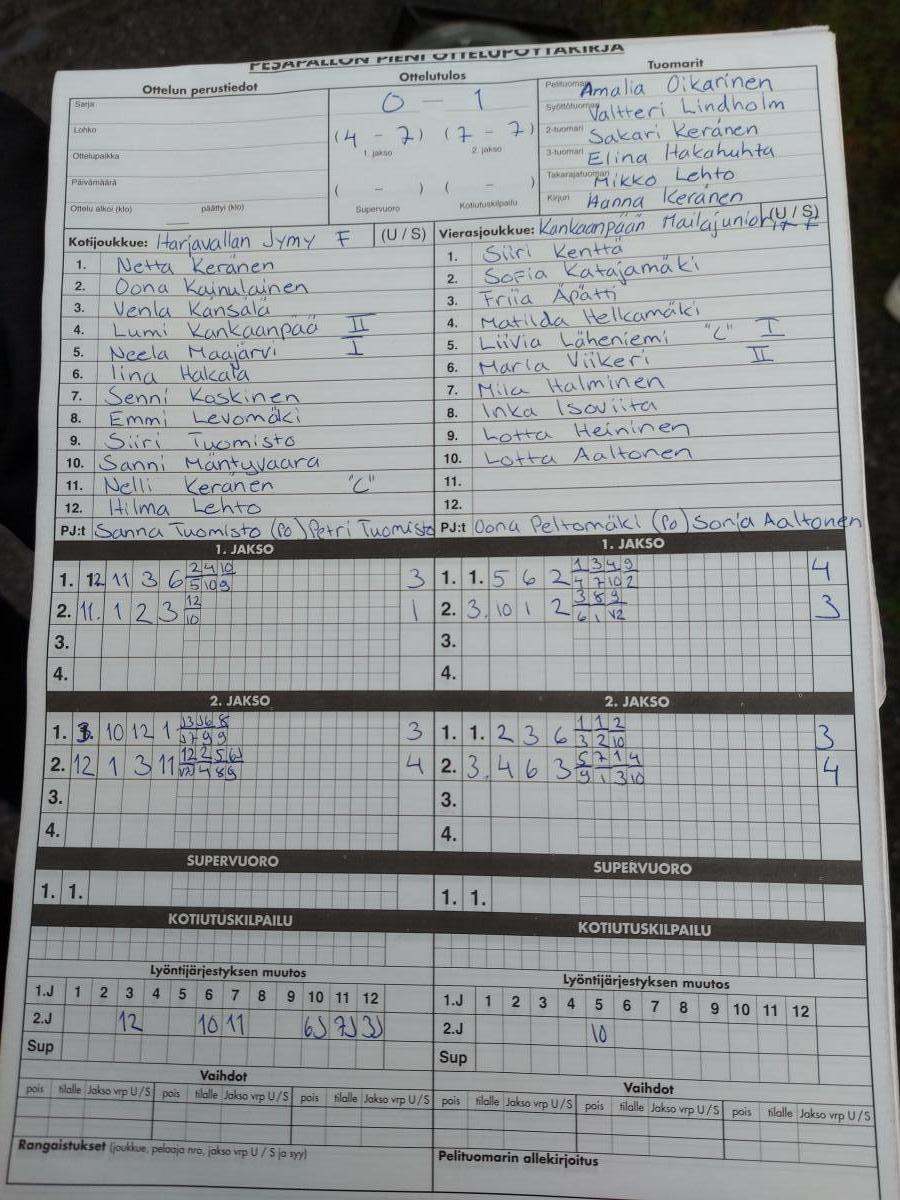 PESÄPALLON PIENI OTTELUPÖYTÄKIRJA
Ottelun perustiedot
Sarja
Lohko
Ottelupaikka
Päivämäärä
Ottelu alkoi (klo) päättyi (klo)
Ottelutulos
0 - 1
(4 - 7) (7 - 7)
1. jakso 2. jakso
( - ) ( - )
Supervuoro Kotiutuskilpailu
Tuomarit
Pelituomari Amalia Oikarinen
Syöttötuomari Valtteri Lindholm
2-tuomari Sakari Keränen
3-tuomari Elina Hakahuhta
Takarajatuomari Mikko Lehto
Kirjuri Hanna Keränen
Kotijoukkue: Harjavallan Jymy F (U / S)
1. Netta Keränen
2. Oona Kainulainen
3. Venla Kansala
4. Lumi Kankaanpää II
5. Neela Maajärvi I
6. Iina Hakala
7. Senni Koskinen
8. Emmi Levomäki
9. Siiri Tuomisto
10. Sanni Mäntyvaara
11. Nelli Keränen "C"
12. Hilma Lehto
PJ:t Sanna Tuomisto (Po) Petri Tuomisto
Vierasjoukkue: Kankaanpään Mailajuniorit F (U / S)
1. Siiri Kenttä
2. Sofia Katajamäki
3. Friia Äpätti
4. Matilda Helkamäki
5. Liivia Läheniemi "C" I
6. Maria Viikeri II
7. Mila Halminen
8. Inka Isoviita
9. Lotta Heininen
10. Lotta Aaltonen
11.
12.
PJ:t Oona Peltomäki (Po) Sonja Aaltonen
1. JAKSO
1. 12 11 3 6 2 4 10 3
5 10 9
2. 11. 1 2 3 12 1
10
3.
4.
1. JAKSO
1. 1. 5 6 2 1 3 4 9 4
4 7 10 2
2. 3. 10 1 2 3 8 9 3
6 1 V2
3.
4.
2. JAKSO
1. 3. 10 12 1 3
2. 12 1 3 11 4
3.
4.
2. JAKSO
1. 1. 2 3 6 1 1 2 3
3 2 10
2. 3. 4 6 3 5 7 1 4 4
9 1 3 10
3.
4.
SUPERVUORO
1. 1.
SUPERVUORO
1. 1.
KOTIUTUSKILPAILU
KOTIUTUSKILPAILU
Lyöntijärjestyksen muutos
1.J 1 2 3 4 5 6 7 8 9 10 11 12
2.J 12 10 11 6J 7J 3J
Sup
Lyöntijärjestyksen muutos
1.J 1 2 3 4 5 6 7 8 9 10 11 12
2.J 10
Sup
Vaihdot
pois tilalle Jakso vrp U / S pois tilalle Jakso vrp U / S pois tilalle Jakso vrp U / S
Vaihdot
pois tilalle Jakso vrp U / S pois tilalle Jakso vrp U / S pois tilalle Jakso vrp U / S
Rangaistukset (joukkue, pelaaja nro, jakso vrp U / S ja syy)
Pelituomarin allekirjoitus